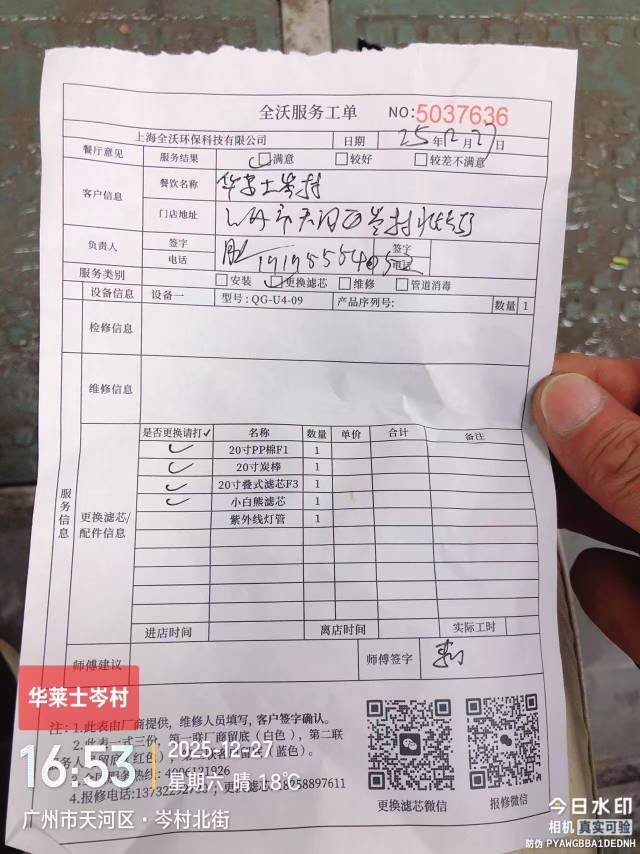 全沃服务工单 NO:5037636
上海全沃环保科技有限公司 日期 25年12月27日
餐厅意见 服务结果 满意 较好 较差不满意
客户信息 餐饮名称 华莱士岑村
门店地址
负责人 签字 签字
电话 电话
服务类别 安装 更换滤芯 维修 管道消毒
设备信息 设备一 型号:QG-U4-09 产品序列号: 数量 1
检修信息
维修信息
服务信息
更换滤芯/配件信息
是否更换请打✓ 名称 数量 单价 合计 备注
✓ 20寸PP棉F1 1
✓ 20寸炭棒 1
✓ 20寸叠式滤芯F3 1
✓ 小白熊滤芯 1
紫外线灯管 1
进店时间 离店时间 实际工时
师傅建议 师傅签字
注:1.此表由厂商提供,维修人员填写,客户签字确认。
2.此表一式三份,第一联厂商留底(白色),第二联
更换滤芯微信 报修微信
华莱士岑村
16:53 2025-12-27
星期六 晴 18℃
广州市天河区·岑村北街
今日水印
相机 真实可验
防伪 PYAWGBBA1DEDNH